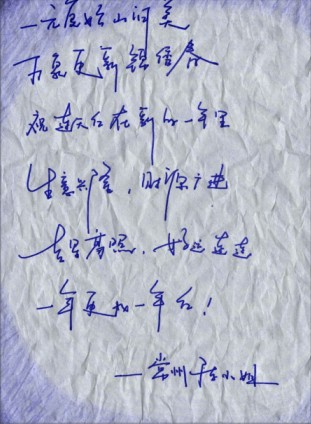 一元复始山河美
万象更新锦绣春
祝连天红在新的一年里
生意兴隆，财源广进
吉星高照，好运连连
一年更比一年红！
—常州陈小姐